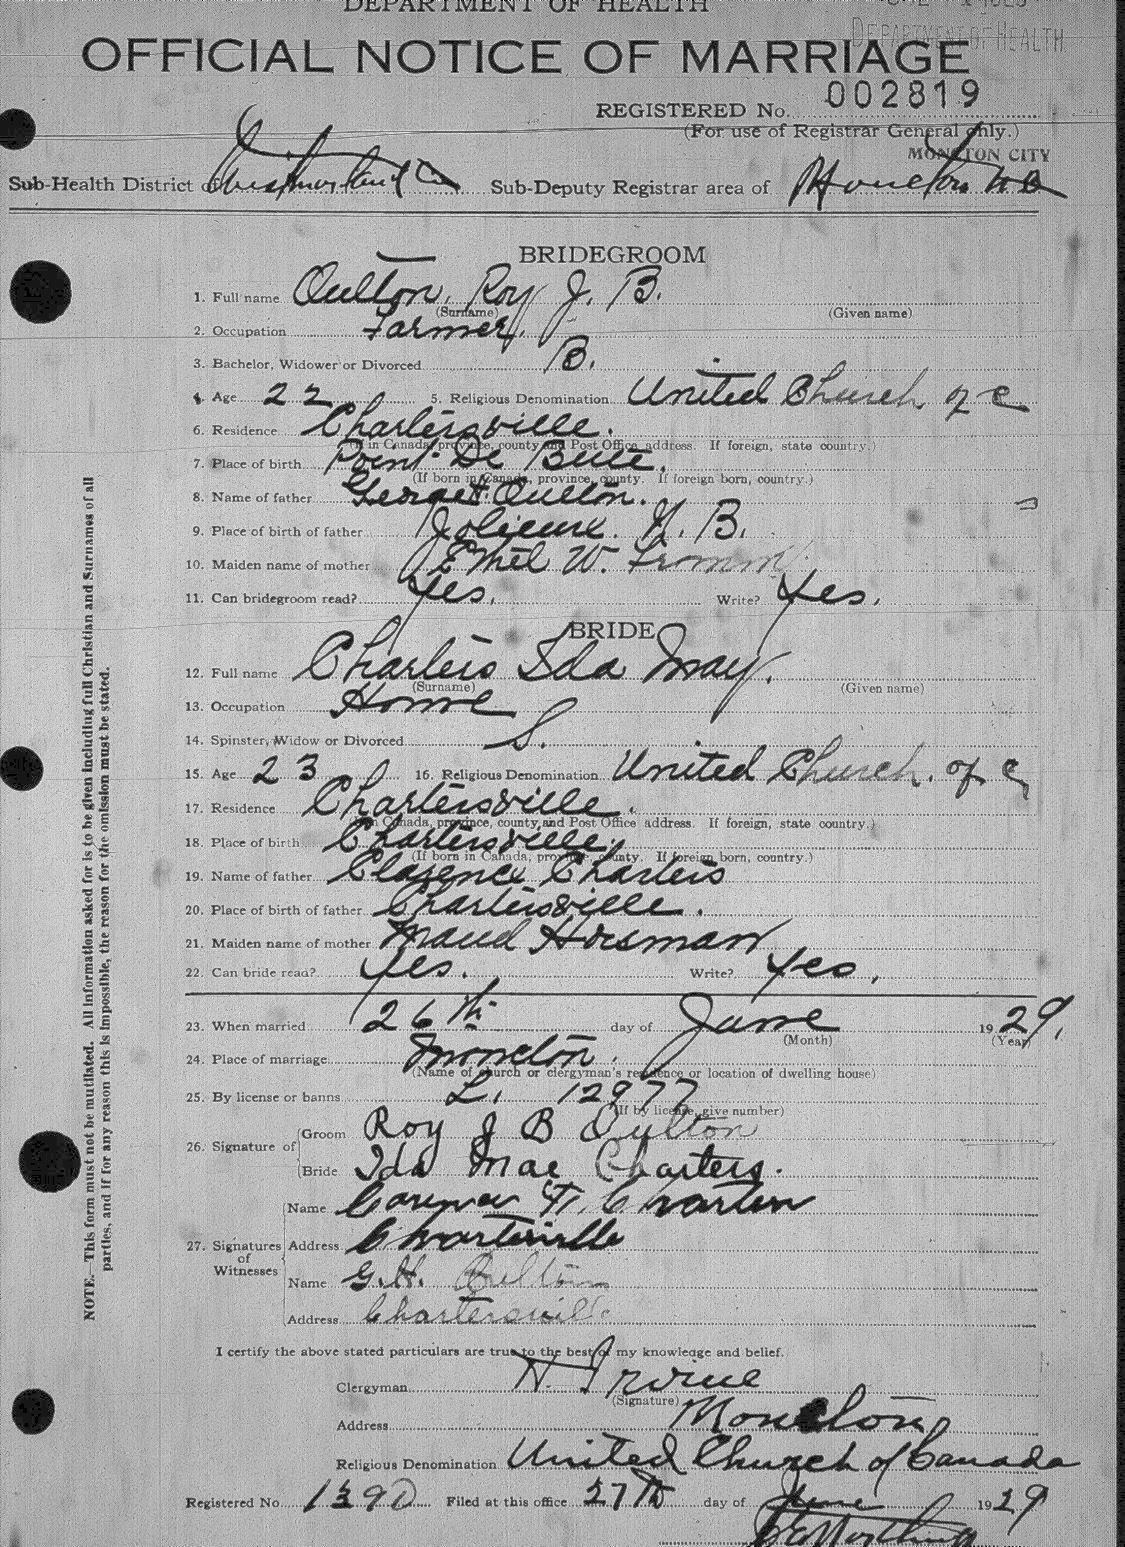 DEPARTMENT OF HEALTH
DEPARTMENT OF HEALTH
OFFICIAL NOTICE OF MARRIAGE
REGISTERED No. 002819
(For use of Registrar General only.)
MONCTON CITY
Sub-Health District of Westmorland Co Sub-Deputy Registrar area of Moncton N B
BRIDEGROOM
1. Full name Oulton, Roy J. B.
(Surname) (Given name)
2. Occupation Farmer.
3. Bachelor, Widower or Divorced B.
4. Age 22 5. Religious Denomination United Church of C
6. Residence Chartersville.
(If in Canada, province, county and Post Office address. If foreign, state country.)
7. Place of birth Point De Bute.
(If born in Canada, province, county. If foreign born, country.)
8. Name of father George H. Oulton.
9. Place of birth of father Jolicure. N. B.
10. Maiden name of mother Ethel W.
11. Can bridegroom read? Yes. Write? Yes.
BRIDE
12. Full name Charters Ida May.
(Surname) (Given name)
13. Occupation Home
14. Spinster, Widow or Divorced S.
15. Age 23 16. Religious Denomination United Church. of C
17. Residence Chartersville.
(If in Canada, province, county and Post Office address. If foreign, state country.)
18. Place of birth Chartersville.
(If born in Canada, province, county. If foreign born, country.)
19. Name of father Clarence Charters
20. Place of birth of father Chartersville.
21. Maiden name of mother Maud Horsman
22. Can bride read? Yes. Write? Yes.
23. When married 26th day of June 1929.
(Month) (Year)
24. Place of marriage Moncton.
(Name of church or clergyman's residence or location of dwelling house)
25. By license or banns L. 12977
(If by license, give number)
26. Signature of Groom Roy J B Oulton
Bride Ida Mae Charters.
27. Signatures of Witnesses Name F. Charters
Address Chartersville
Name G. H. Oulton
Address Chartersville
I certify the above stated particulars are true to the best of my knowledge and belief.
Clergyman H. Irvine
(Signature)
Address Moncton
Religious Denomination United Church of Canada
Registered No. Filed at this office 27th day of June 1929
NOTE.—This form must not be mutilated. All information asked for is to be given including full Christian and Surnames of all
parties, and if for any reason this is impossible, the reason for the omission must be stated.